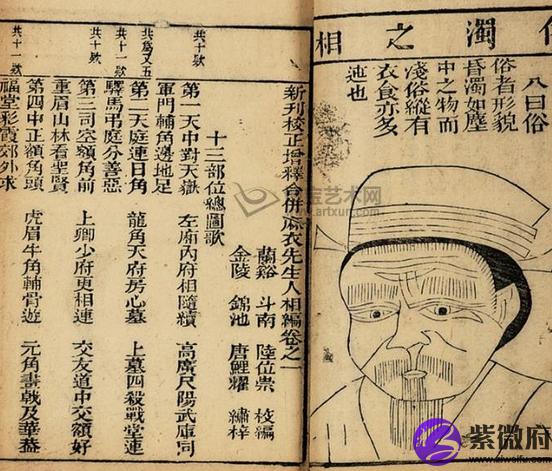 濁之相
八曰俗
俗者形貌
昏濁如塵
中之物而
淺俗縱有
衣食亦多
迍也
新刊校正增釋合併麻衣先生人相編卷之一
蘭谿 斗南 陸位崇 校編
金陵 錦池 唐鯉耀 繡梓
十三部位總圖歌
共十款
第一天中對天嶽 左廂內府相隨續 高廣尺陽武庫同
軍門輔角邊地足
共為又五
第二天庭連日角 龍角天府房心墓 上墓四殺戰堂連
共十一款
驛馬弔庭分善惡
共十款
第三司空額角前 上卿少府更相連 交友道中交額好
重眉山林看聖賢
共十一款
第四中正額角頭 虎眉牛角輔骨遊 元角斧戟及華蓋
福堂彩霞郊外求
艺术网
www.artxun.com
紫微府